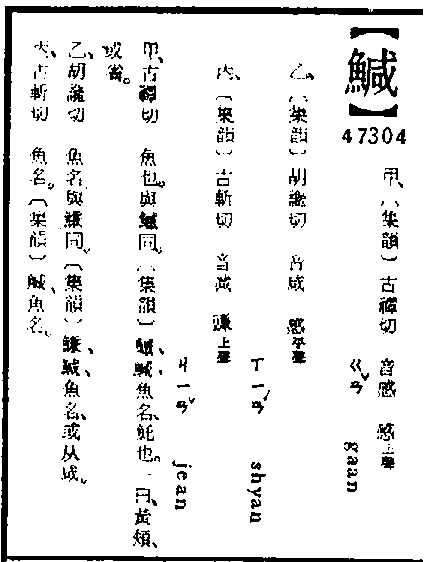 【鰔】
47304
甲、〔集韻〕古禫切 音感 感上聲 ㄍㄢˇ gaan
乙、〔集韻〕胡讒切 音咸 咸平聲 ㄒㄧㄢˊ shyan
丙、〔集韻〕古斬切 音减 豏上聲 ㄐㄧㄢˇ jean
甲、古禫切 魚也。與鰔同。〔集韻〕鰔、魚名、魠也。一曰黃頰、
或省。
乙、胡讒切 魚名、與鰜同。〔集韻〕鰜、鰔、魚名、或从咸。
丙、古斬切 魚名。〔集韻〕鰔、魚名。